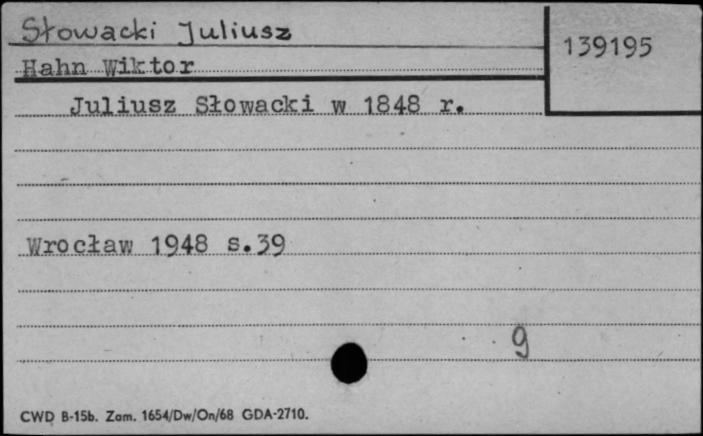 Słowacki Juliusz
139195
Hahn Wiktor
Juliusz Słowacki w 1848 r.
Wrocław 1948 s.39
9
CWD B-15b. Zam. 1654/Dw/On/68 GDA-2710.